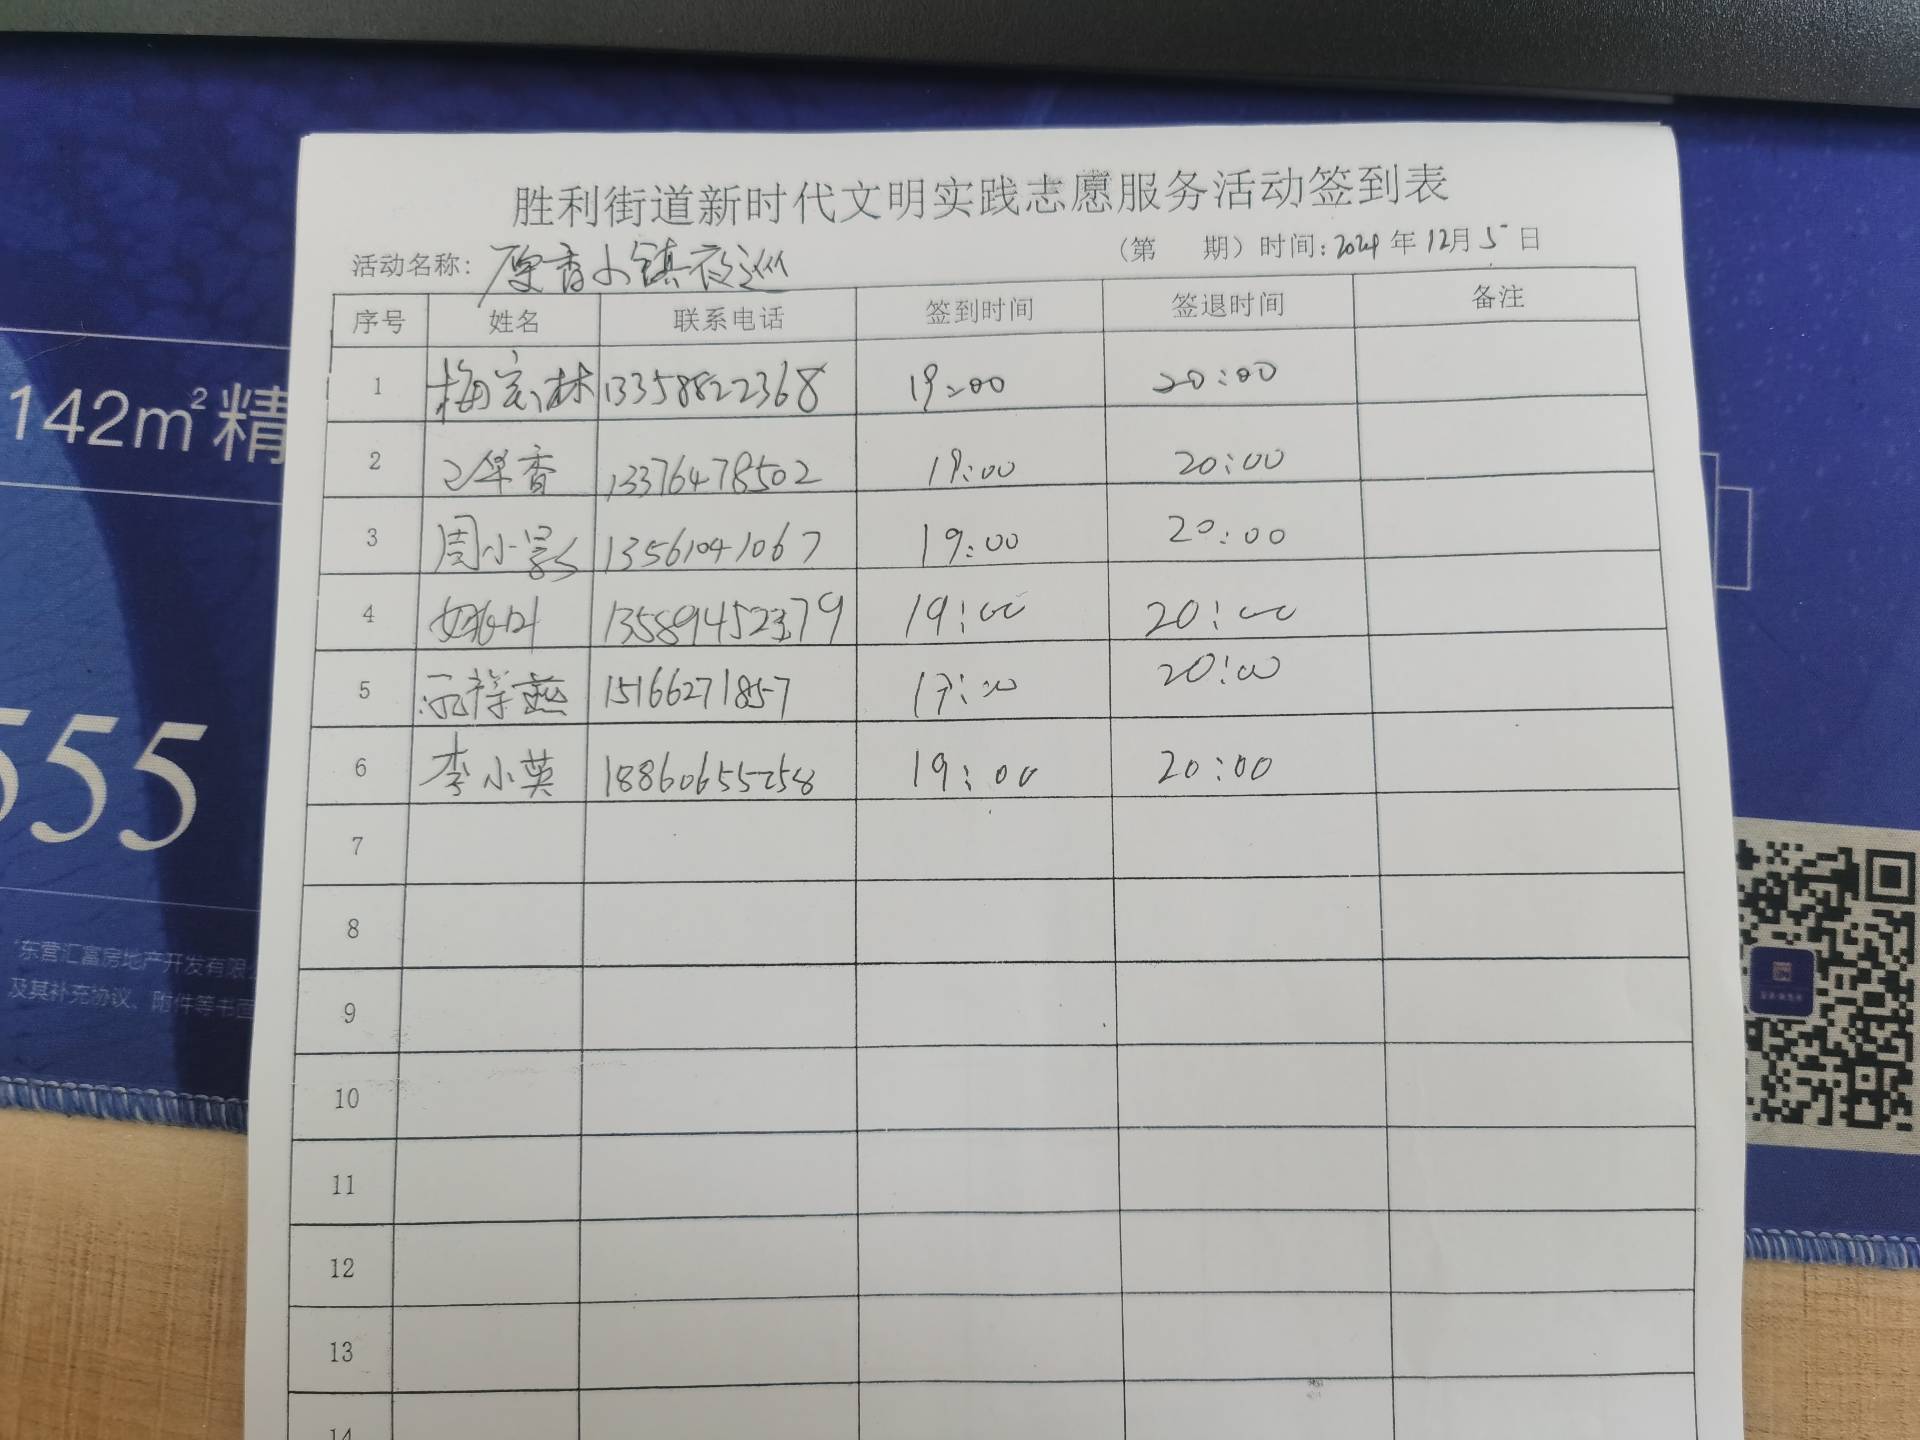 胜利街道新时代文明实践志愿服务活动签到表
活动名称: 香小镇夜巡 (第 期) 时间: 2024 年 12月 5 日
序号 姓名 联系电话 签到时间 签退时间 备注
1 梅宗林 13358822368 19:00 20:00
2 华香 13376478502 19:00 20:00
3 周小影 13561041067 19:00 20:00
4 姚叶 19:00 20:00
5 祥燕 15166271857 20:00
6 李小英 18860655258 19:00 20:00
7
8
9
10
11
12
13
14
142m²精
555
*东营汇富房地产开发有限
及其补充协议、附件等书面